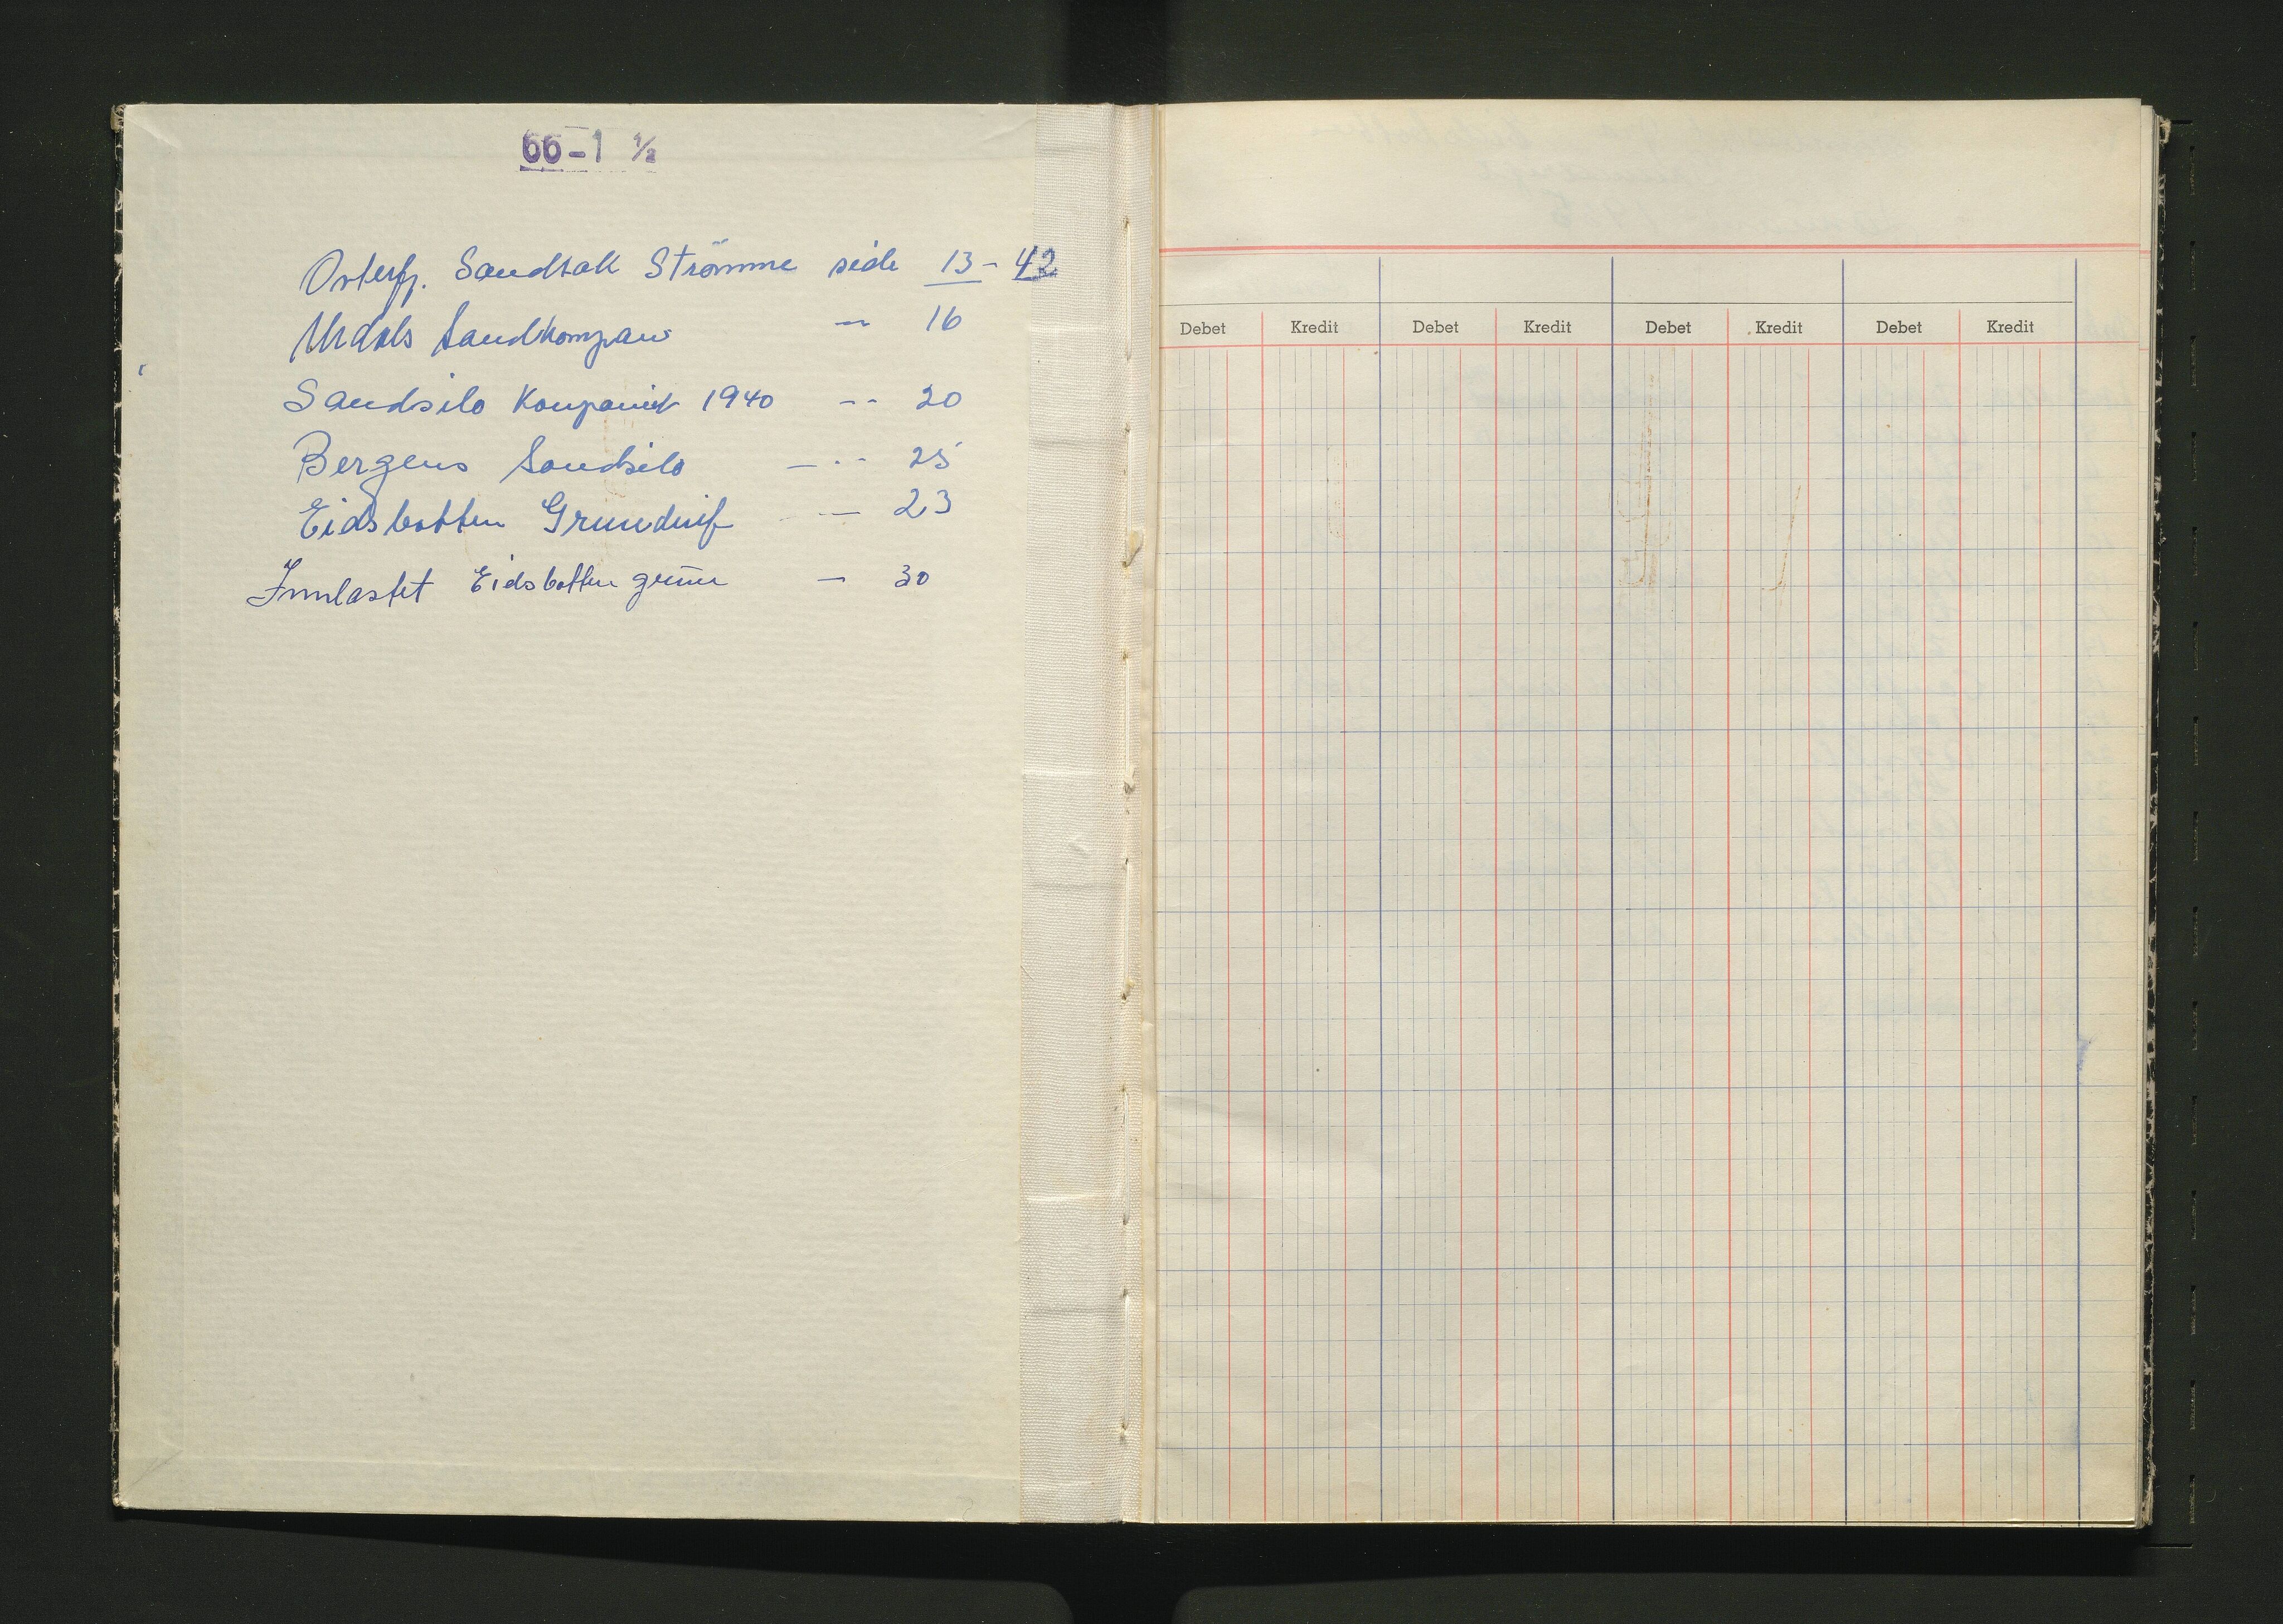 66-1 ½
Osterfj. Sandtak Strömme side 13 - 42
Urdals Sandkompani — 16
Sandsilo Kompaniet 1940 -- 20
Bergens Sandsilo — -- 25
Eidsbotten Grusdrift — 23
Innlastet Eidsbotten grus — 30
Debet Kredit Debet Kredit Debet Kredit Debet Kredit